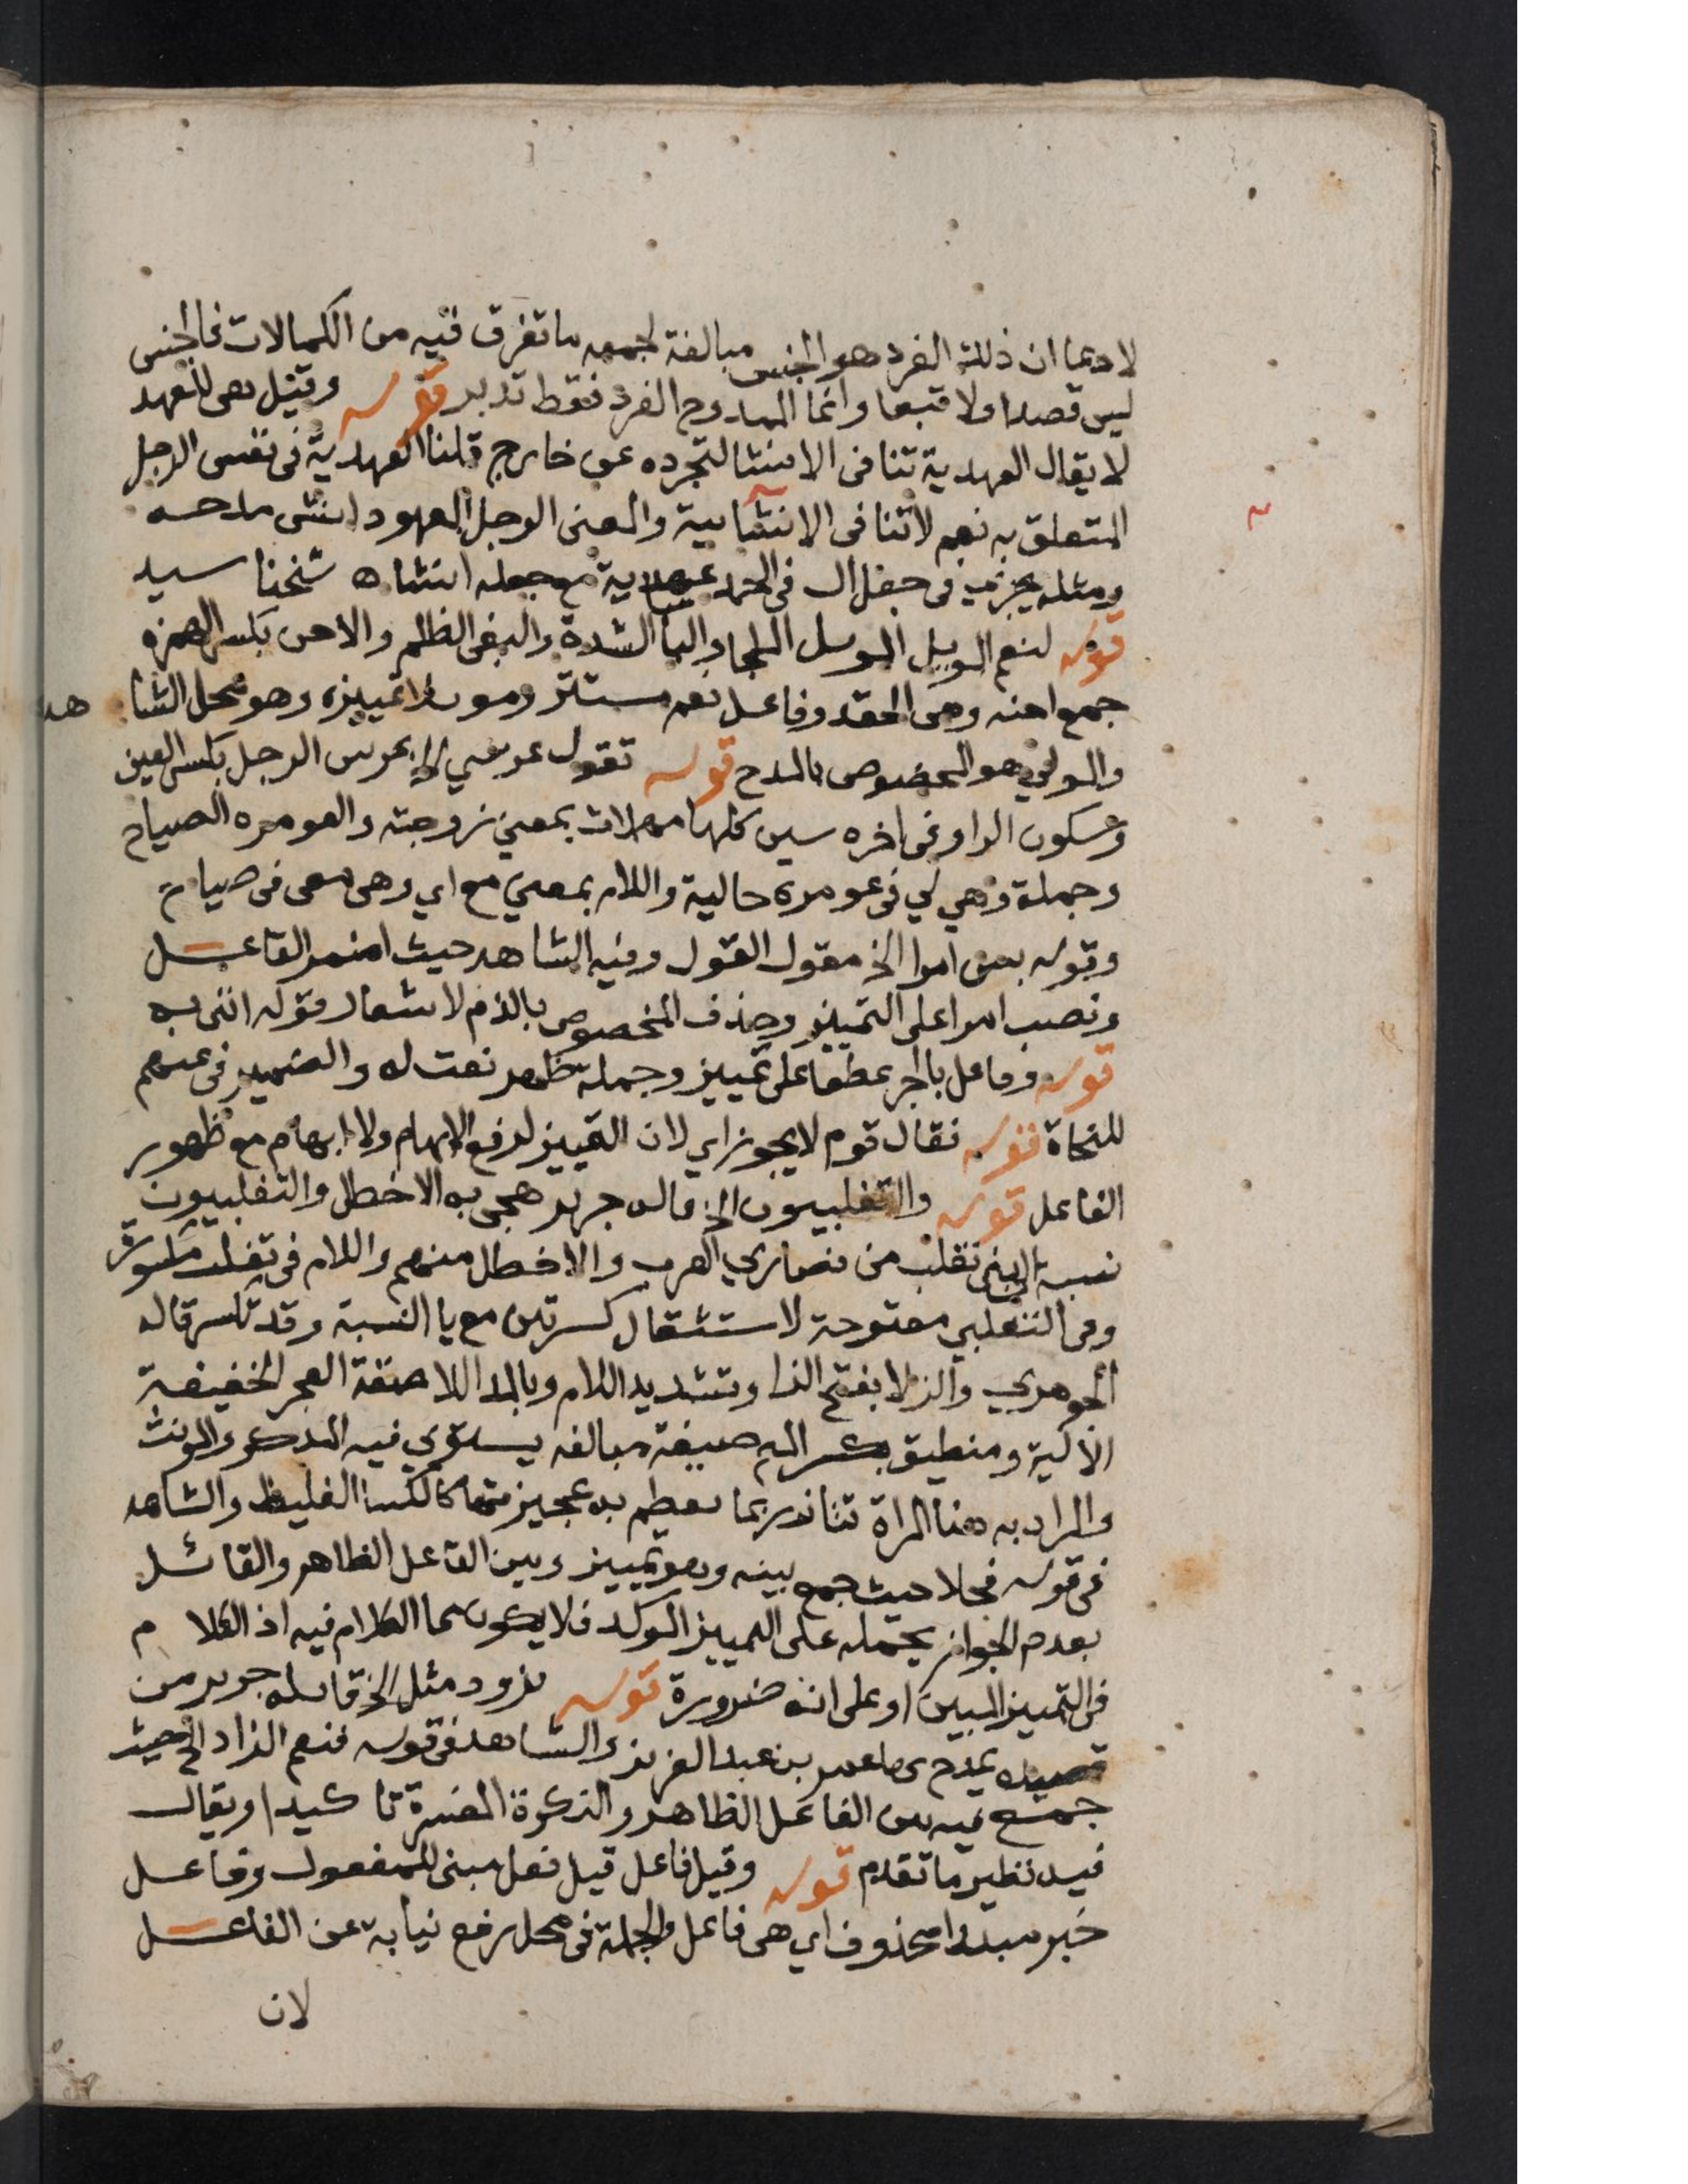 لادعا ان ذلك الفرد هو الجنس مبالغة لجمعه ما تفرق فيه من الكمالات فالجنس
ليس قصدا ولا تبعا وانما الممدوح الفرد فقط تدبر قوله وقيل هي للعهد
لا يقال العهدية تنافى الانشا لتجرده عن خارج قلنا العهدية فى نفس الرجل
المتعلق به نعم لا تنافى الانشايية والمعنى الرجل المعهود انشى مدحه
ومثله يجرى فى جعل ال فى الحمد عهدية مع جعله انشا ه شخنا سيد
قوله لنعم الموئل الموئل الملجا والبأ الشدة والبغى الظلم والاحن بكسر الهمزه
جمع احنه وهى الحقد وفاعل نعم مستتر وموئلا تمييزه وهو محل الشا هد
والمولى هو المخصوص بالمدح قوله تقول عرسي الخ عرس الرجل بكسر العين
وسكون الرا وفى اخره سين كلها مهملات بمعنى زوجته والعومره الصياح
وجملة وهي لي فى عومرة حالية واللام بمعنى مع اي وهى معى فى صياح
وقوله بيس امرا الخ مقول القول وفيه الشاهد حيث اضمر الفاعل
ونصب امرا على التمييز وحذف المخصوص بالذم لاشعار قوله اننى به
قوله وفاعل بالجر عطفا على تمييز وجملة ظهر نعت له والضمير فى عنهم
للنحاة قوله فقال قوم لا يجوز اي لان التمييز لرفع الابهام ولا ابهام مع ظهور
الفاعل قوله والتغلبيون الخ قاله جرير هجى به الاخطل والتغلبيون
نسبة الى بنى تغلب من نصاري العرب والاخطل منهم واللام فى تغلب مكسورة
وفى التغلبي مفتوحة لاستثقال كسرتين مع يا النسبة وقد تكسر قاله
الجوهري والزلا بفتح الزا وتشديد اللام وبالمد اللاصقة العجز الخفيفة
الالية ومنطيق بكسر الميم صيغة مبالغه يستوي فيه المذكر والمونث
والمراد به هنا المراة تتازر بما تعظم به عجيزتها كالكسا الغليظ والشاهد
فى قوله فحلا حيث جمع بينه وهو تمييز وبين الفاعل الظاهر والقائل
بعدم الجواز يحمله على التمييز الموكد فلا يكون مما الكلام فيه اذ الكلا م
فى التمييز المبين او على انه ضرورة قوله تزود مثل الخ قاله جرير من
قصيده يمدح بها عمر بن عبد العزيز والشاهد فى قوله فنعم الزاد الخ حيث
جمع فيه بين الفاعل الظاهر والنكرة المفسرة تا كيدا ويقال
فيه نظير ما تقدم قوله وقيل فاعل قيل فعل مبنى للمفعول وفاعل
خبر مبتدا محذوف اي هى فاعل والجملة فى محل رفع نيابة عن الفاعل
لان